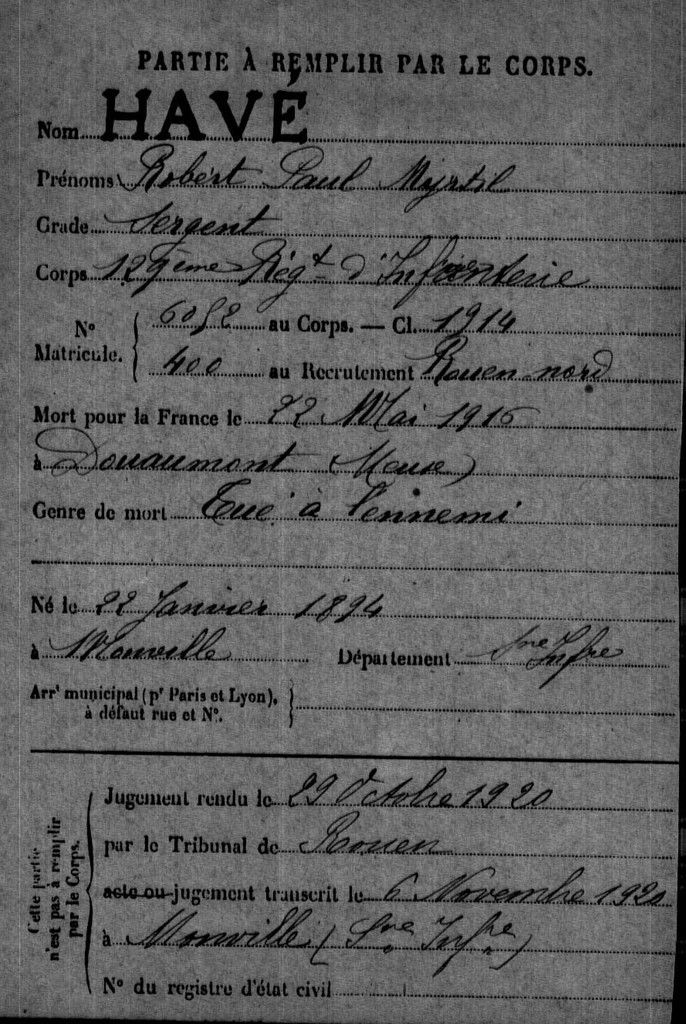 PARTIE À REMPLIR PAR LE CORPS.
Nom HAVÉ
Prénoms Robert Paul Myrtil
Grade Sergent
Corps 129ème Régt d'Infanterie
N° Matricule. { 6052 au Corps. — Cl. 1914
400 au Recrutement Rouen nord
Mort pour la France le 22 Mai 1916
à Douaumont (Meuse)
Genre de mort Tué à l'ennemi
Né le 22 Janvier 1894
à Monville Département Sne Infre
Arrt municipal (pr Paris et Lyon),
à défaut rue et N°. }
Cette partie n'est pas à remplir par le Corps. {
Jugement rendu le 29 Octobre 1920
par le Tribunal de Rouen
acte ou jugement transcrit le 6 Novembre 1920
à Monville (Sne Infre)
N° du registre d'état civil